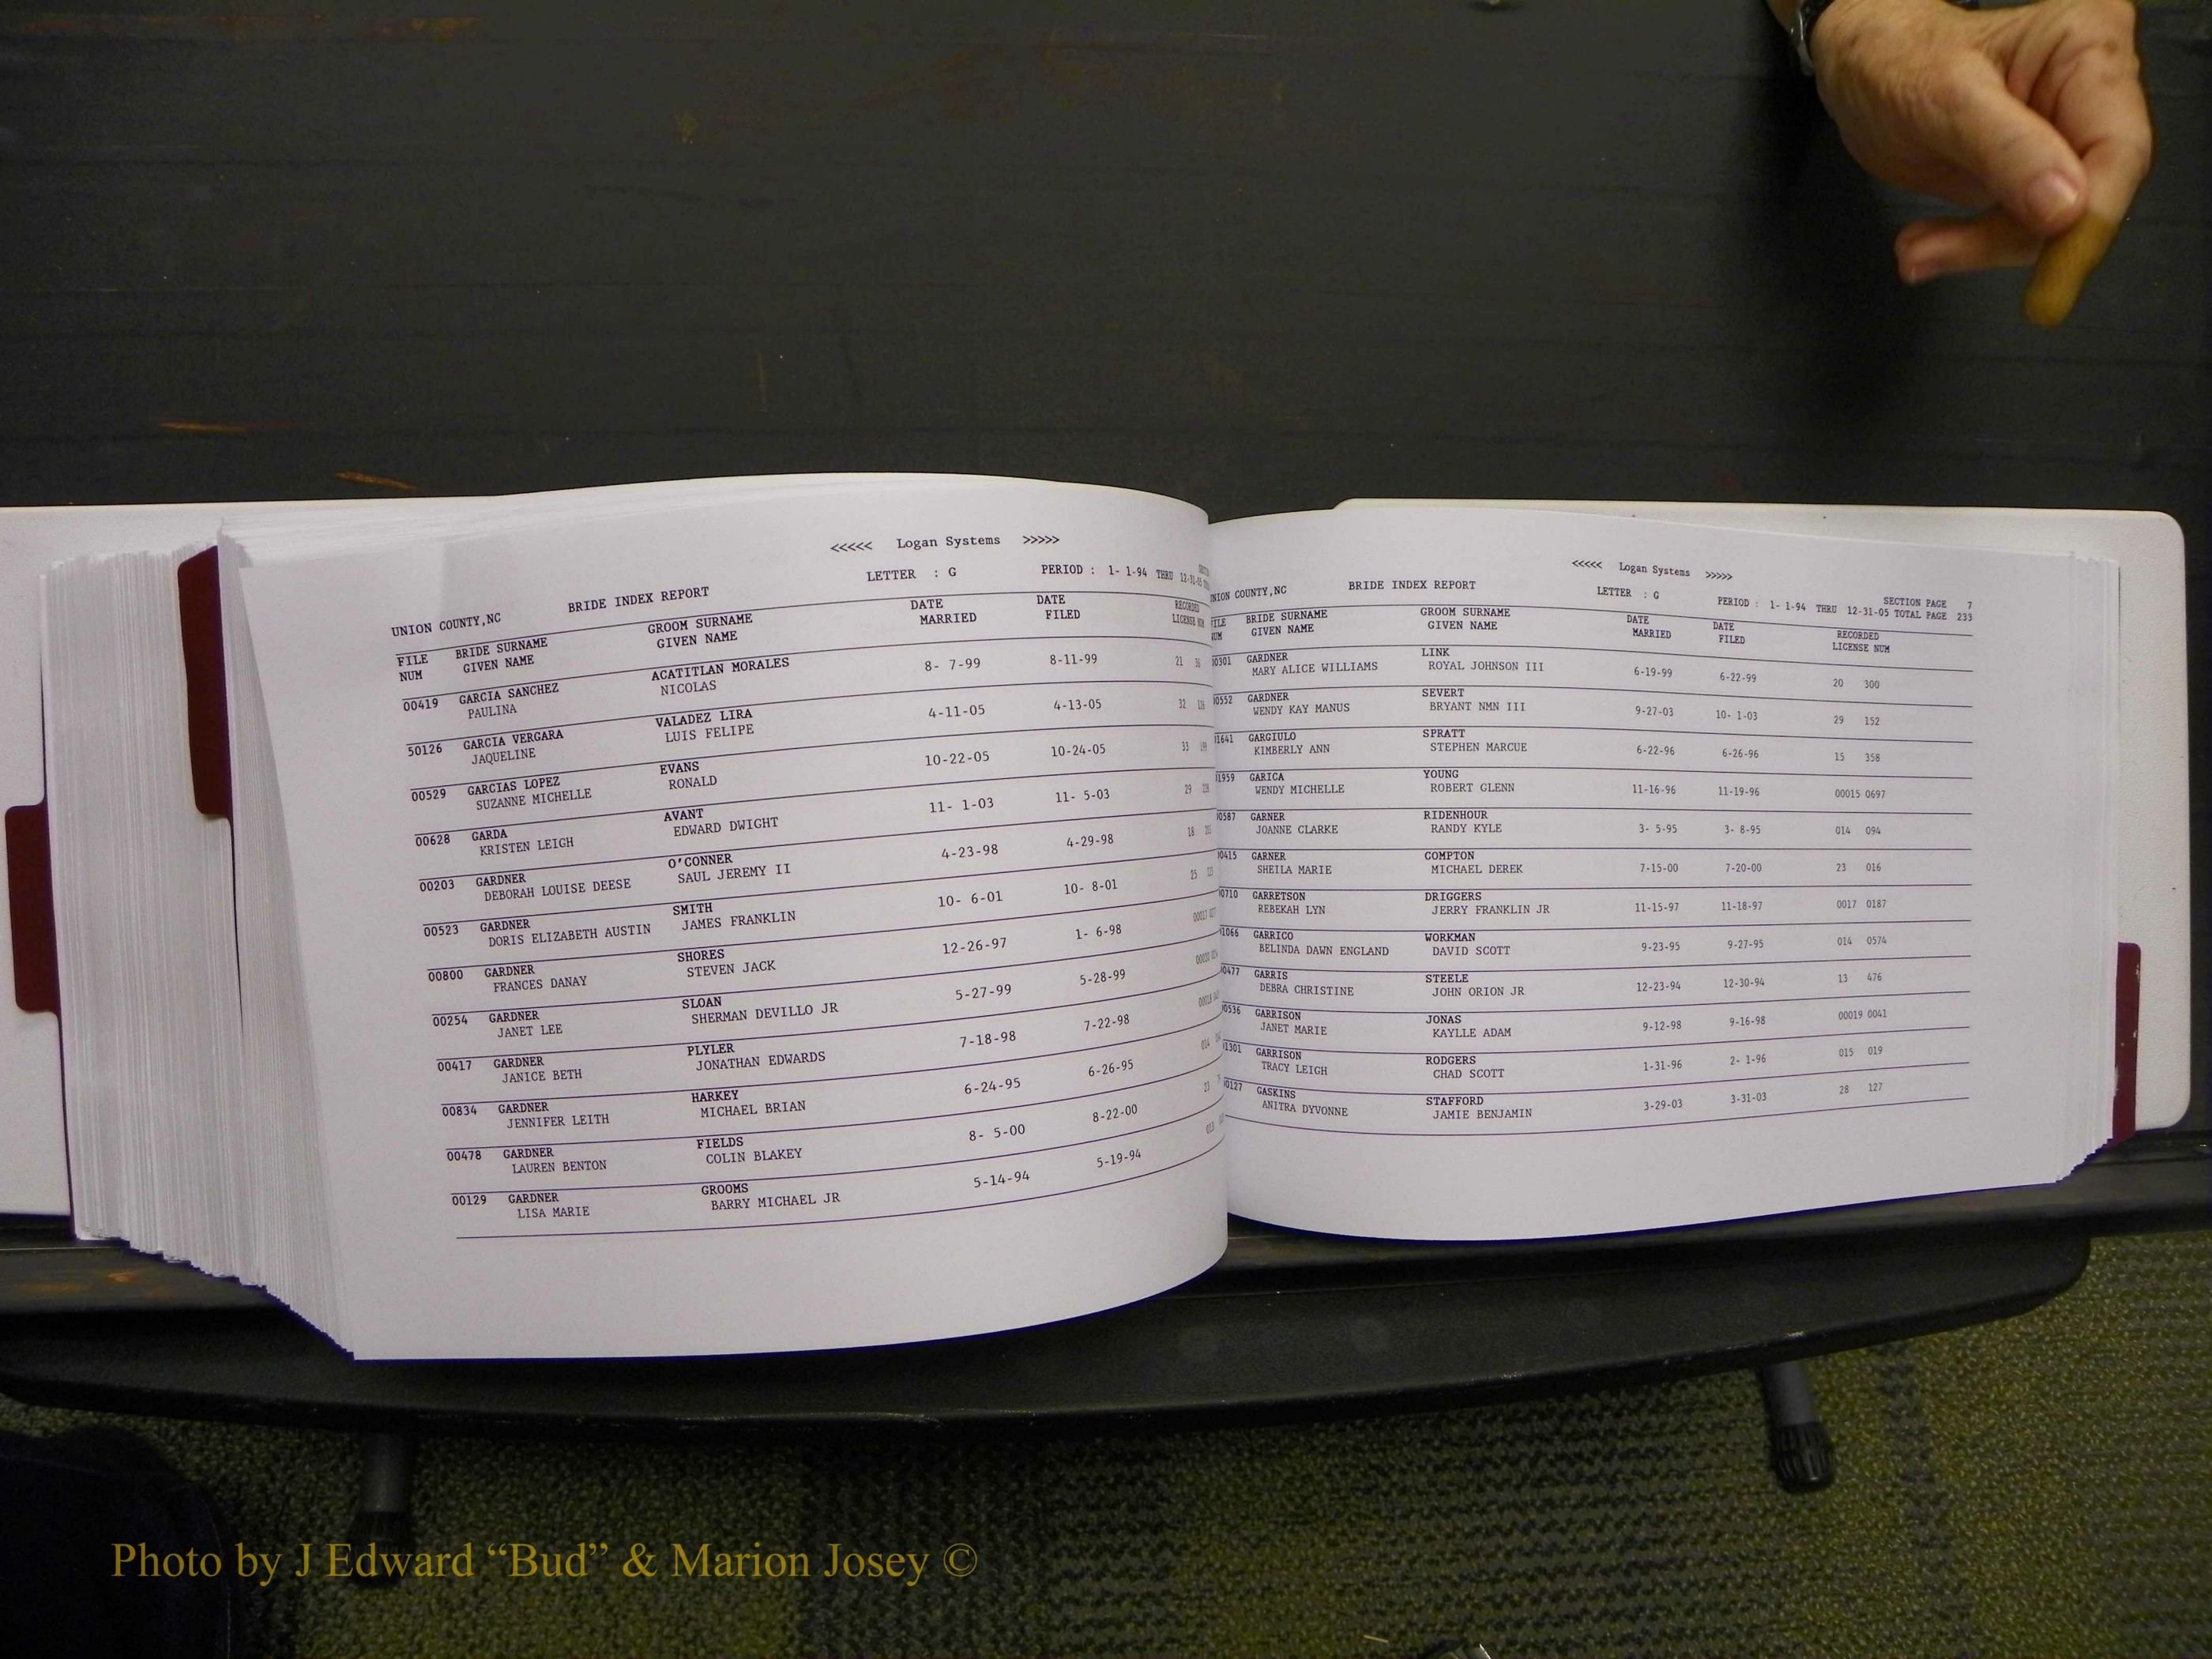 <<<<< Logan Systems >>>>>
UNION COUNTY,NC BRIDE INDEX REPORT LETTER : G PERIOD : 1- 1-94 THRU
FILE BRIDE SURNAME GROOM SURNAME DATE DATE RECORDED
NUM GIVEN NAME GIVEN NAME MARRIED FILED LICENSE
00419 GARCIA SANCHEZ ACATITLAN MORALES 8- 7-99 8-11-99 21
PAULINA NICOLAS
50126 GARCIA VERGARA VALADEZ LIRA 4-11-05 4-13-05 32
JAQUELINE LUIS FELIPE
00529 GARCIAS LOPEZ EVANS 10-22-05 10-24-05 33
SUZANNE MICHELLE RONALD
00628 GARDA AVANT 11- 1-03 11- 5-03 29
KRISTEN LEIGH EDWARD DWIGHT
00203 GARDNER O'CONNER 4-23-98 4-29-98 18
DEBORAH LOUISE DEESE SAUL JEREMY II
00523 GARDNER SMITH 10- 6-01 10- 8-01 25
DORIS ELIZABETH AUSTIN JAMES FRANKLIN
00800 GARDNER SHORES 12-26-97 1- 6-98
FRANCES DANAY STEVEN JACK
00254 GARDNER SLOAN 5-27-99 5-28-99
JANET LEE SHERMAN DEVILLO JR
00417 GARDNER PLYLER 7-18-98 7-22-98
JANICE BETH JONATHAN EDWARDS
00834 GARDNER HARKEY 6-24-95 6-26-95
JENNIFER LEITH MICHAEL BRIAN
00478 GARDNER FIELDS 8- 5-00 8-22-00
LAUREN BENTON COLIN BLAKEY
00129 GARDNER GROOMS 5-14-94 5-19-94
LISA MARIE BARRY MICHAEL JR
<<<<< Logan Systems >>>>>
SECTION PAGE 7
COUNTY,NC BRIDE INDEX REPORT LETTER : G PERIOD : 1- 1-94 THRU 12-31-05 TOTAL PAGE 233
BRIDE SURNAME GROOM SURNAME DATE DATE RECORDED
GIVEN NAME GIVEN NAME MARRIED FILED LICENSE NUM
GARDNER LINK 6-19-99 6-22-99 20 300
MARY ALICE WILLIAMS ROYAL JOHNSON III
GARDNER SEVERT 9-27-03 10- 1-03 29 152
WENDY KAY MANUS BRYANT NMN III
GARGIULO SPRATT 6-22-96 6-26-96 15 358
KIMBERLY ANN STEPHEN MARCUE
GARICA YOUNG 11-16-96 11-19-96 00015 0697
WENDY MICHELLE ROBERT GLENN
GARNER RIDENHOUR 3- 5-95 3- 8-95 014 094
JOANNE CLARKE RANDY KYLE
GARNER COMPTON 7-15-00 7-20-00 23 016
SHEILA MARIE MICHAEL DEREK
GARRETSON DRIGGERS 11-15-97 11-18-97 0017 0187
REBEKAH LYN JERRY FRANKLIN JR
GARRICO WORKMAN 9-23-95 9-27-95 014 0574
BELINDA DAWN ENGLAND DAVID SCOTT
GARRIS STEELE 12-23-94 12-30-94 13 476
DEBRA CHRISTINE JOHN ORION JR
GARRISON JONAS 9-12-98 9-16-98 00019 0041
JANET MARIE KAYLLE ADAM
GARRISON RODGERS 1-31-96 2- 1-96 015 019
TRACY LEIGH CHAD SCOTT
GASKINS STAFFORD 3-29-03 3-31-03 28 127
ANITRA DYVONNE JAMIE BENJAMIN
Photo by J Edward “Bud” & Marion Josey ©